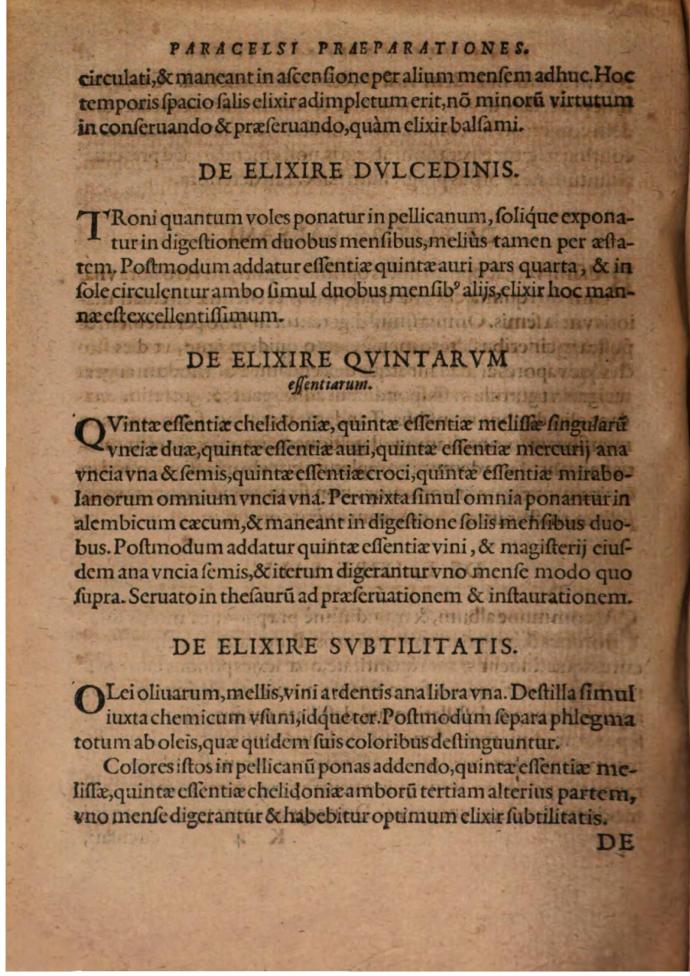 PARACELSI PRÆPARATIONES.
circulati,& maneant in aſcenſione per alium menſem adhuc. Hoc
temporis ſpacio ſalis elixir adimpletum erit,nõ minorũ virtutum
in conſeruando & præſeruando,quàm elixir balſami.
DE ELIXIRE DVLCEDINIS.
TRoni quantum voles ponatur in pellicanum, ſolíque expona-
tur in digeſtionem duobus menſibus,meliùs tamen per æſta-
tem. Poſtmodum addatur eſſentiæ quintæ auri pars quarta, & in
ſole circulentur ambo ſimul duobus menſibꝰ alijs,elixir hoc man-
næ eſt excellentiſſimum.
DE ELIXIRE QVINTARVM
eſſentiarum.
QVintæ eſſentiæ chelidoniæ, quintæ eſſentiæ meliſſæ ſingularũ
vnciæ duæ,quintæ eſſentiæ auri,quintæ eſſentiæ mercurij ana
vncia vna & ſemis,quintæ eſſentiæ croci,quintæ eſſentiæ mirabo-
lanorum omnium vncia vna. Permixta ſimul omnia ponantur in
alembicum cæcum,& maneant in digeſtione ſolis menſibus duo-
bus. Poſtmodum addatur quintæ eſſentiæ vini, & magiſterij eiuſ-
dem ana vncia ſemis,& iterum digerantur vno menſe modo quo
ſupra. Seruato in theſaurũ ad præſeruationem & inſtaurationem.
DE ELIXIRE SVBTILITATIS.
OLei oliuarum,mellis,vini ardentis ana libra vna. Deſtilla ſimul
iuxta chemicum vſum,idque ter. Poſtmodùm ſepara phlegma
totum ab oleis,quæ quidem ſuis coloribus deſtinguuntur.
Colores iſtos in pellicanũ ponas addendo,quintæ eſſentiæ me-
liſſæ,quintæ eſſentiæ chelidoniæ amborũ tertiam alterius partem,
vno menſe digerantur & habebitur optimum elixir ſubtilitatis.
DE